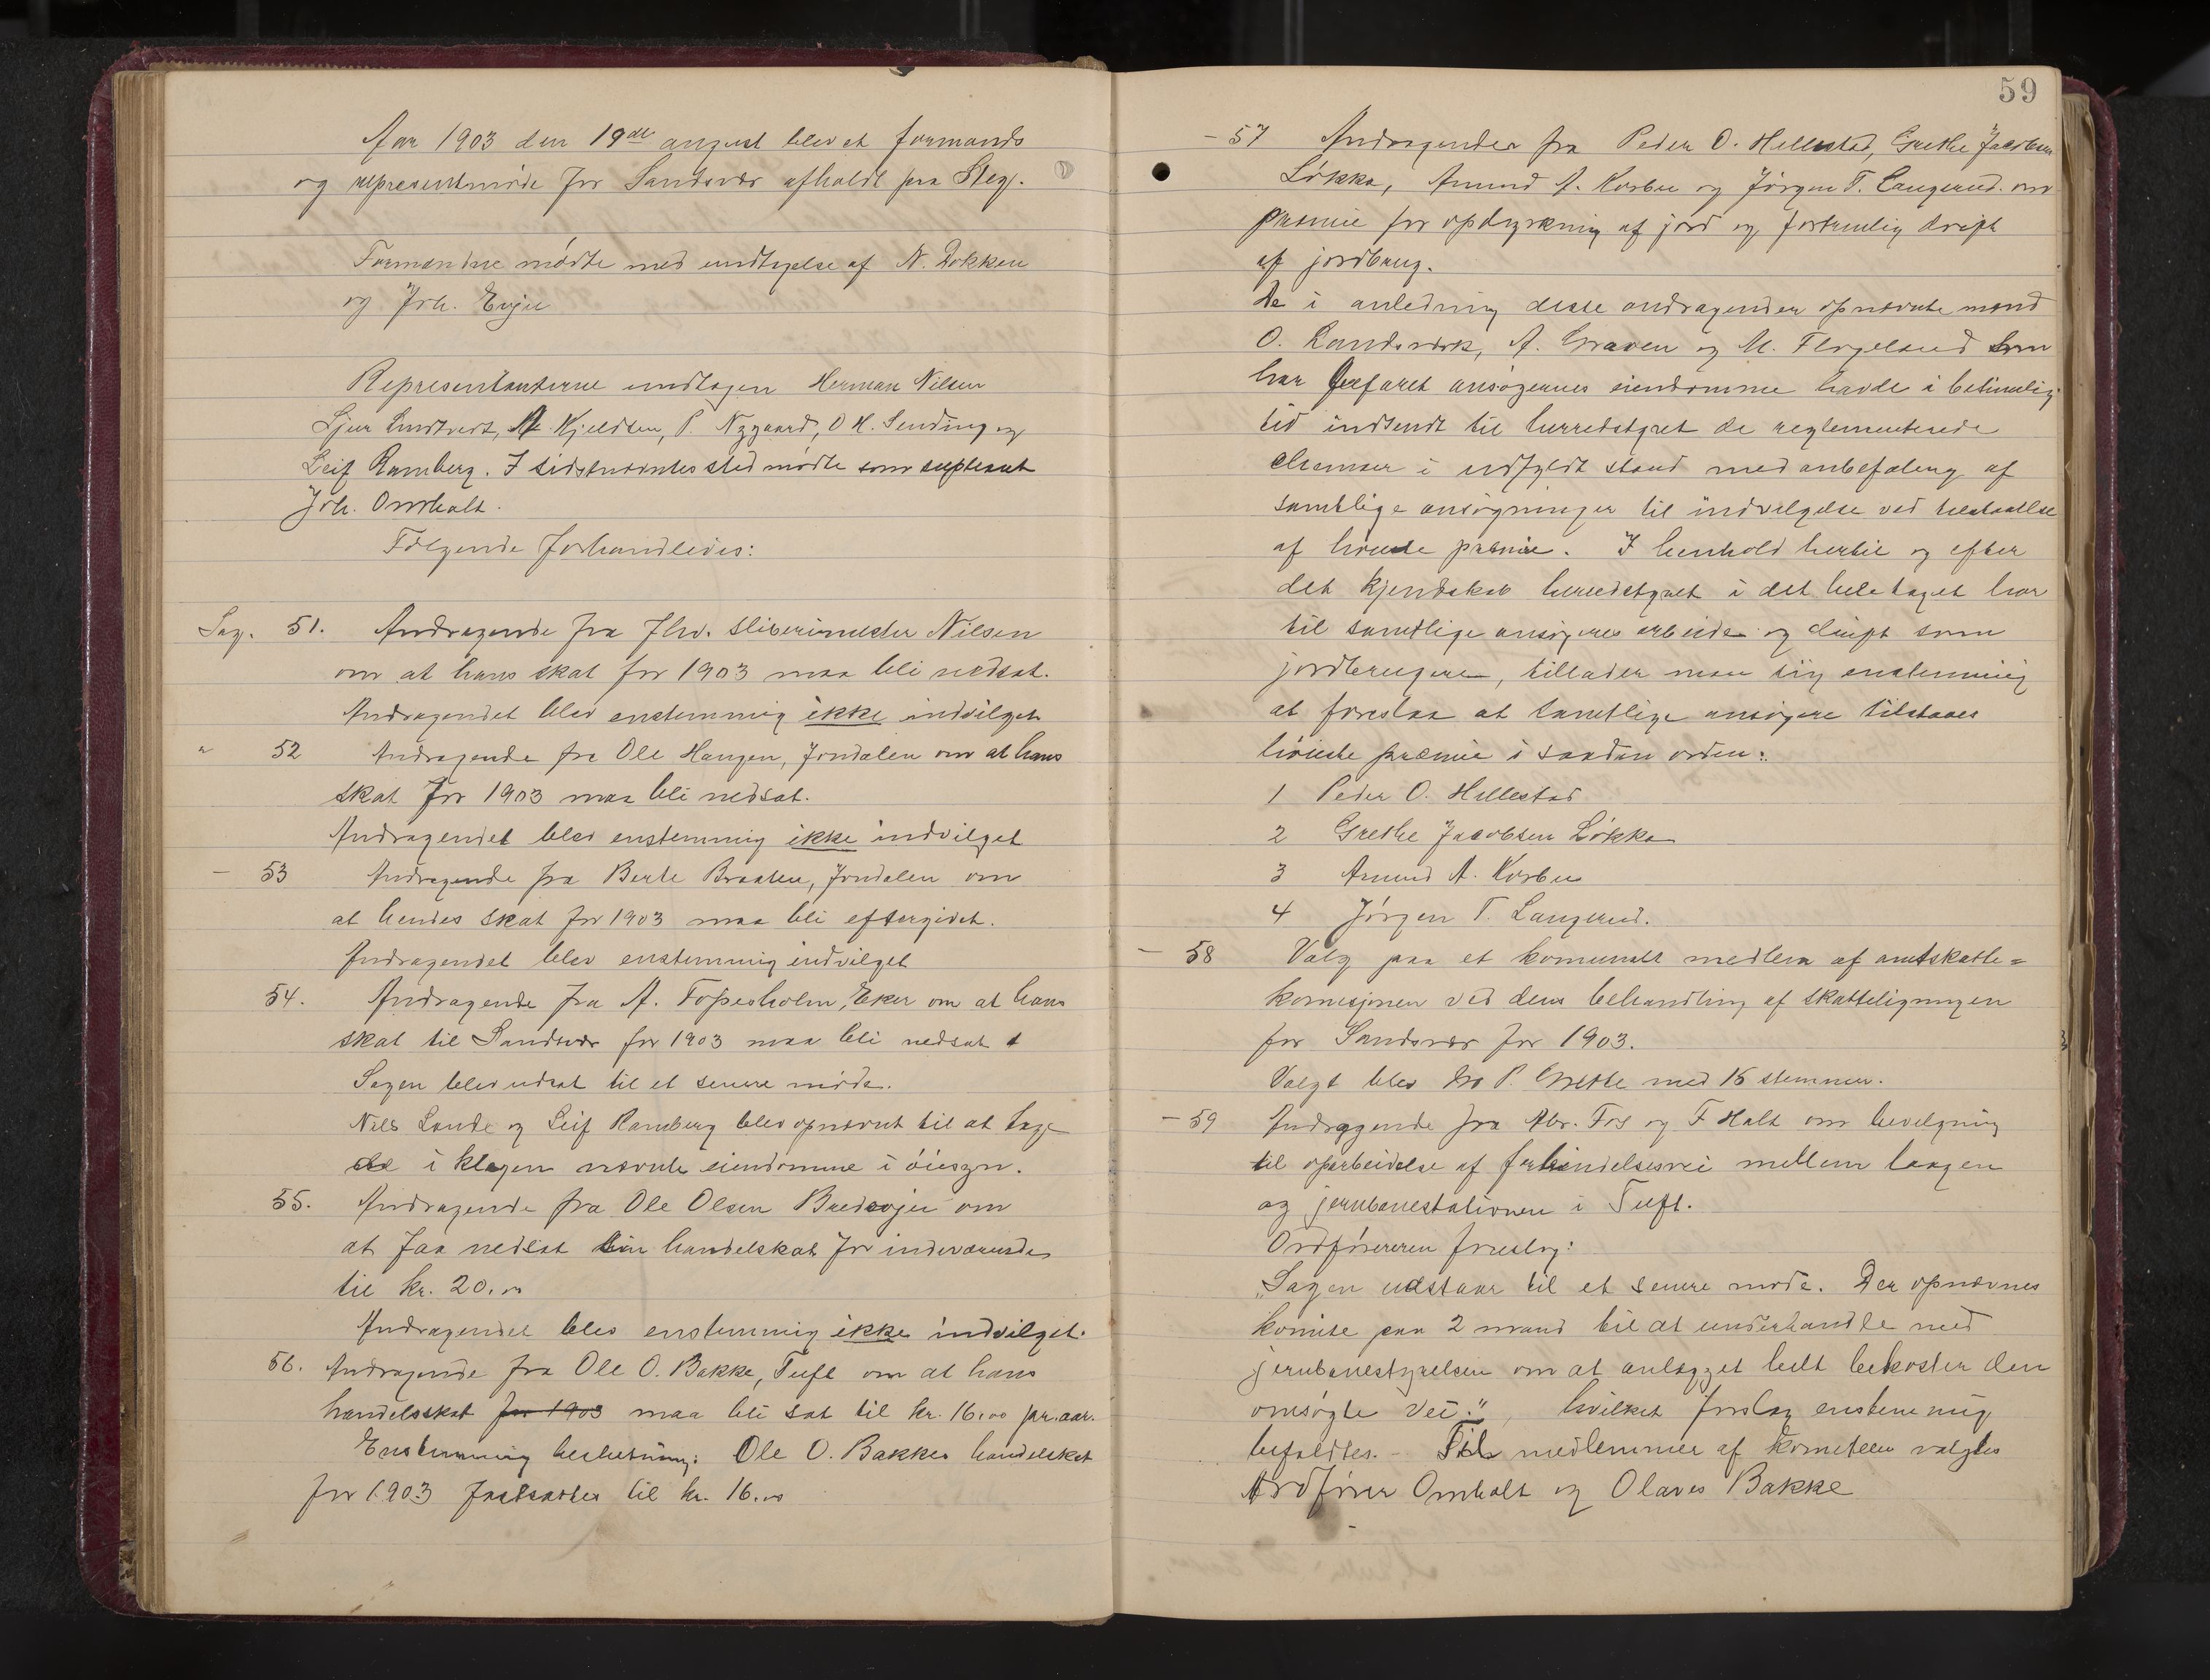 Aar 1903 den 19de august blev et formands
og representmøde for Sandsvær afholdt paa Steg.
Formændne mødte med undtagelse af N. Dokken
og Joh. Evju
Representanterne undtagen Herman Nilsen
Sjur Lindtvedt, M. Kjeldsen, P. Nygaard, O H. Sending og
Leif Ramberg. I sidstnævntes sted mødte som supleant
Joh. Omholt.
Følgende forhandledes:
Sag. 51. Andragende fra Fhv. sliberimester Nilsen
om at hans skat for 1903 maa bli nedsat.
Andragendet blev enstemmig ikke indvilget
" 52 Andragende fra Ole Haugen, Jondalen om at hans
skat for 1903 maa bli nedsat.
Andragendet blev enstemmig ikke indvilget
— 53 Andragende fra Berte Braaten, Jondalen om
at hendes skat for 1903 maa bli eftergivet.
Andragendet blev enstemmig indvilget
54. Andragende fra A. Fossesholm, Eker om at hans
skat til Sandsvær for 1903 maa bli nedsat
Sagen blev udsat til et senere møde.
Nils Lande og Leif Ramberg blev opnævnt til at tage
de i klagen nævnte eiendomme i øiesyn.
55. Andragende fra Ole Olsen Bredevju om
at faa nedsat sin handelskat for indeværende
til kr. 20.00
Andragendet blev enstemmig ikke indvilget.
56. Andragende fra Ole O. Bakke, Tuft om at hans
handelsskat for 1903 maa bli sat til kr. 16.00 pr. aar.
Enstemmig beslutning: Ole O. Bakkes handelskat
for 1903 fastsættes til kr. 16.00
59
— 57 Andragender fra Peder O. Hellestad, Grethe Jacobsen
Løkka, Amund A. Korbu og Jørgen T. Langerud om
præmie for opdyrkning af jord og fortrinlig drift
af jordbrug.
De i anledning disse andragender opnævnte mænd
O. Landsverk, A. Graven og M. Flegeland som
har befaret ansøgernes eiendomme havde i betimelig
tid indsendt til herredstyret de reglementerede
skemaer i udfyldt stand med anbefaling af
samtlige ansøgninger til indvilgelse ved tilstaaelse
af høieste præmie. I henhold hertil og efter
det kjendskab herredstyret i det hele taget har
til samtlige ansøgeres arbeide og drift som
jordbrugere, tillader man sig enstemmig
at foreslaa at samtlige ansøgere tilstaaes
høieste præmie i saadan orden:
1 Peder O. Hellestad
2 Grethe Jacobsen Løkka
3 Amund A. Korbu
4 Jørgen T. Langerud.
— 58 Valg paa et komunalt medlem af amtskatte=
komisjonen ved dens behandling af skatteligningen
for Sandsvær for 1903.
Valgt blev P. Grette med 15 stemmer.
— 59 Andragende fra Abr. Fos og F Holt om bevilgning
til oparbeidelse af forbindelsesvei mellem laagen
og jernbanestationen i Tuft.
Ordføreren foreslog:
"Sagen udstaar til et senere møde. Der opnævnes
komite paa 2 mand til at underhandle med
jernbanestyrelsen om at anlægget helt bekoster den
omsøgte vei.", hvilket forslag enstemmig
bifaldtes. – Til medlemmer af komiteen valgtes
Ordfører Omholt og Olaves Bakke